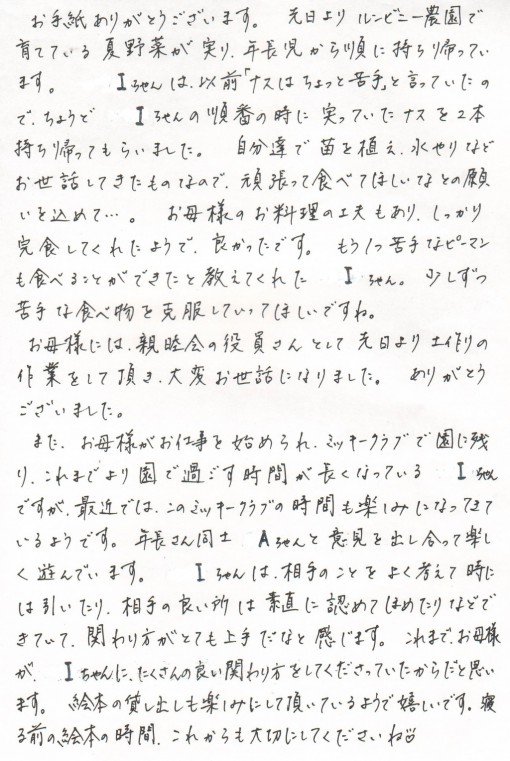 お手紙ありがとうございます。 先日より ルンビニー農園で
育てている 夏野菜が 実り、年長児から順に持ち帰ってい
ます。 Iちゃんは、以前「ナスは ちょっと苦手」と言っていたの
で、ちょうど Iちゃんの順番の時に 実っていた ナスを2本
持ち帰ってもらいました。 自分達で 苗を植え、水やりなど
お世話してきたものなので、頑張って食べてほしいなとの願
いを込めて…。 お母様のお料理の工夫もあり、しっかり
完食してくれたようで、良かったです。 もう1つ 苦手なピーマン
も食べることができたと 教えてくれた Iちゃん。 少しずつ
苦手な食べ物を 克服していってほしいですね。
お母様には、親睦会の役員さんとして 先日より 土作りの
作業をして頂き、大変お世話になりました。 ありがとう
ございました。
また、お母様がお仕事を始められ、ミッキークラブで園に残
り、これまでより園で過ごす時間が長くなっている Iちゃん
ですが、最近では、このミッキークラブの時間も楽しみになってきて
いるようです。 年長さん同士 Aちゃんと意見を出し合って楽し
く遊んでいます。 Iちゃんは、相手のことをよく考えて時に
は引いたり、相手の良い所は素直に認めてほめたりなどで
きていて、関わり方がとても上手だなと感じます。 これまで、お母様
が、Iちゃんに、たくさんの良い関わり方をしてくださっていたからだと思い
ます。 絵本の貸し出しも楽しみにして頂いているようで嬉しいです。寝
る前の絵本の時間、これからも大切にしてくださいね